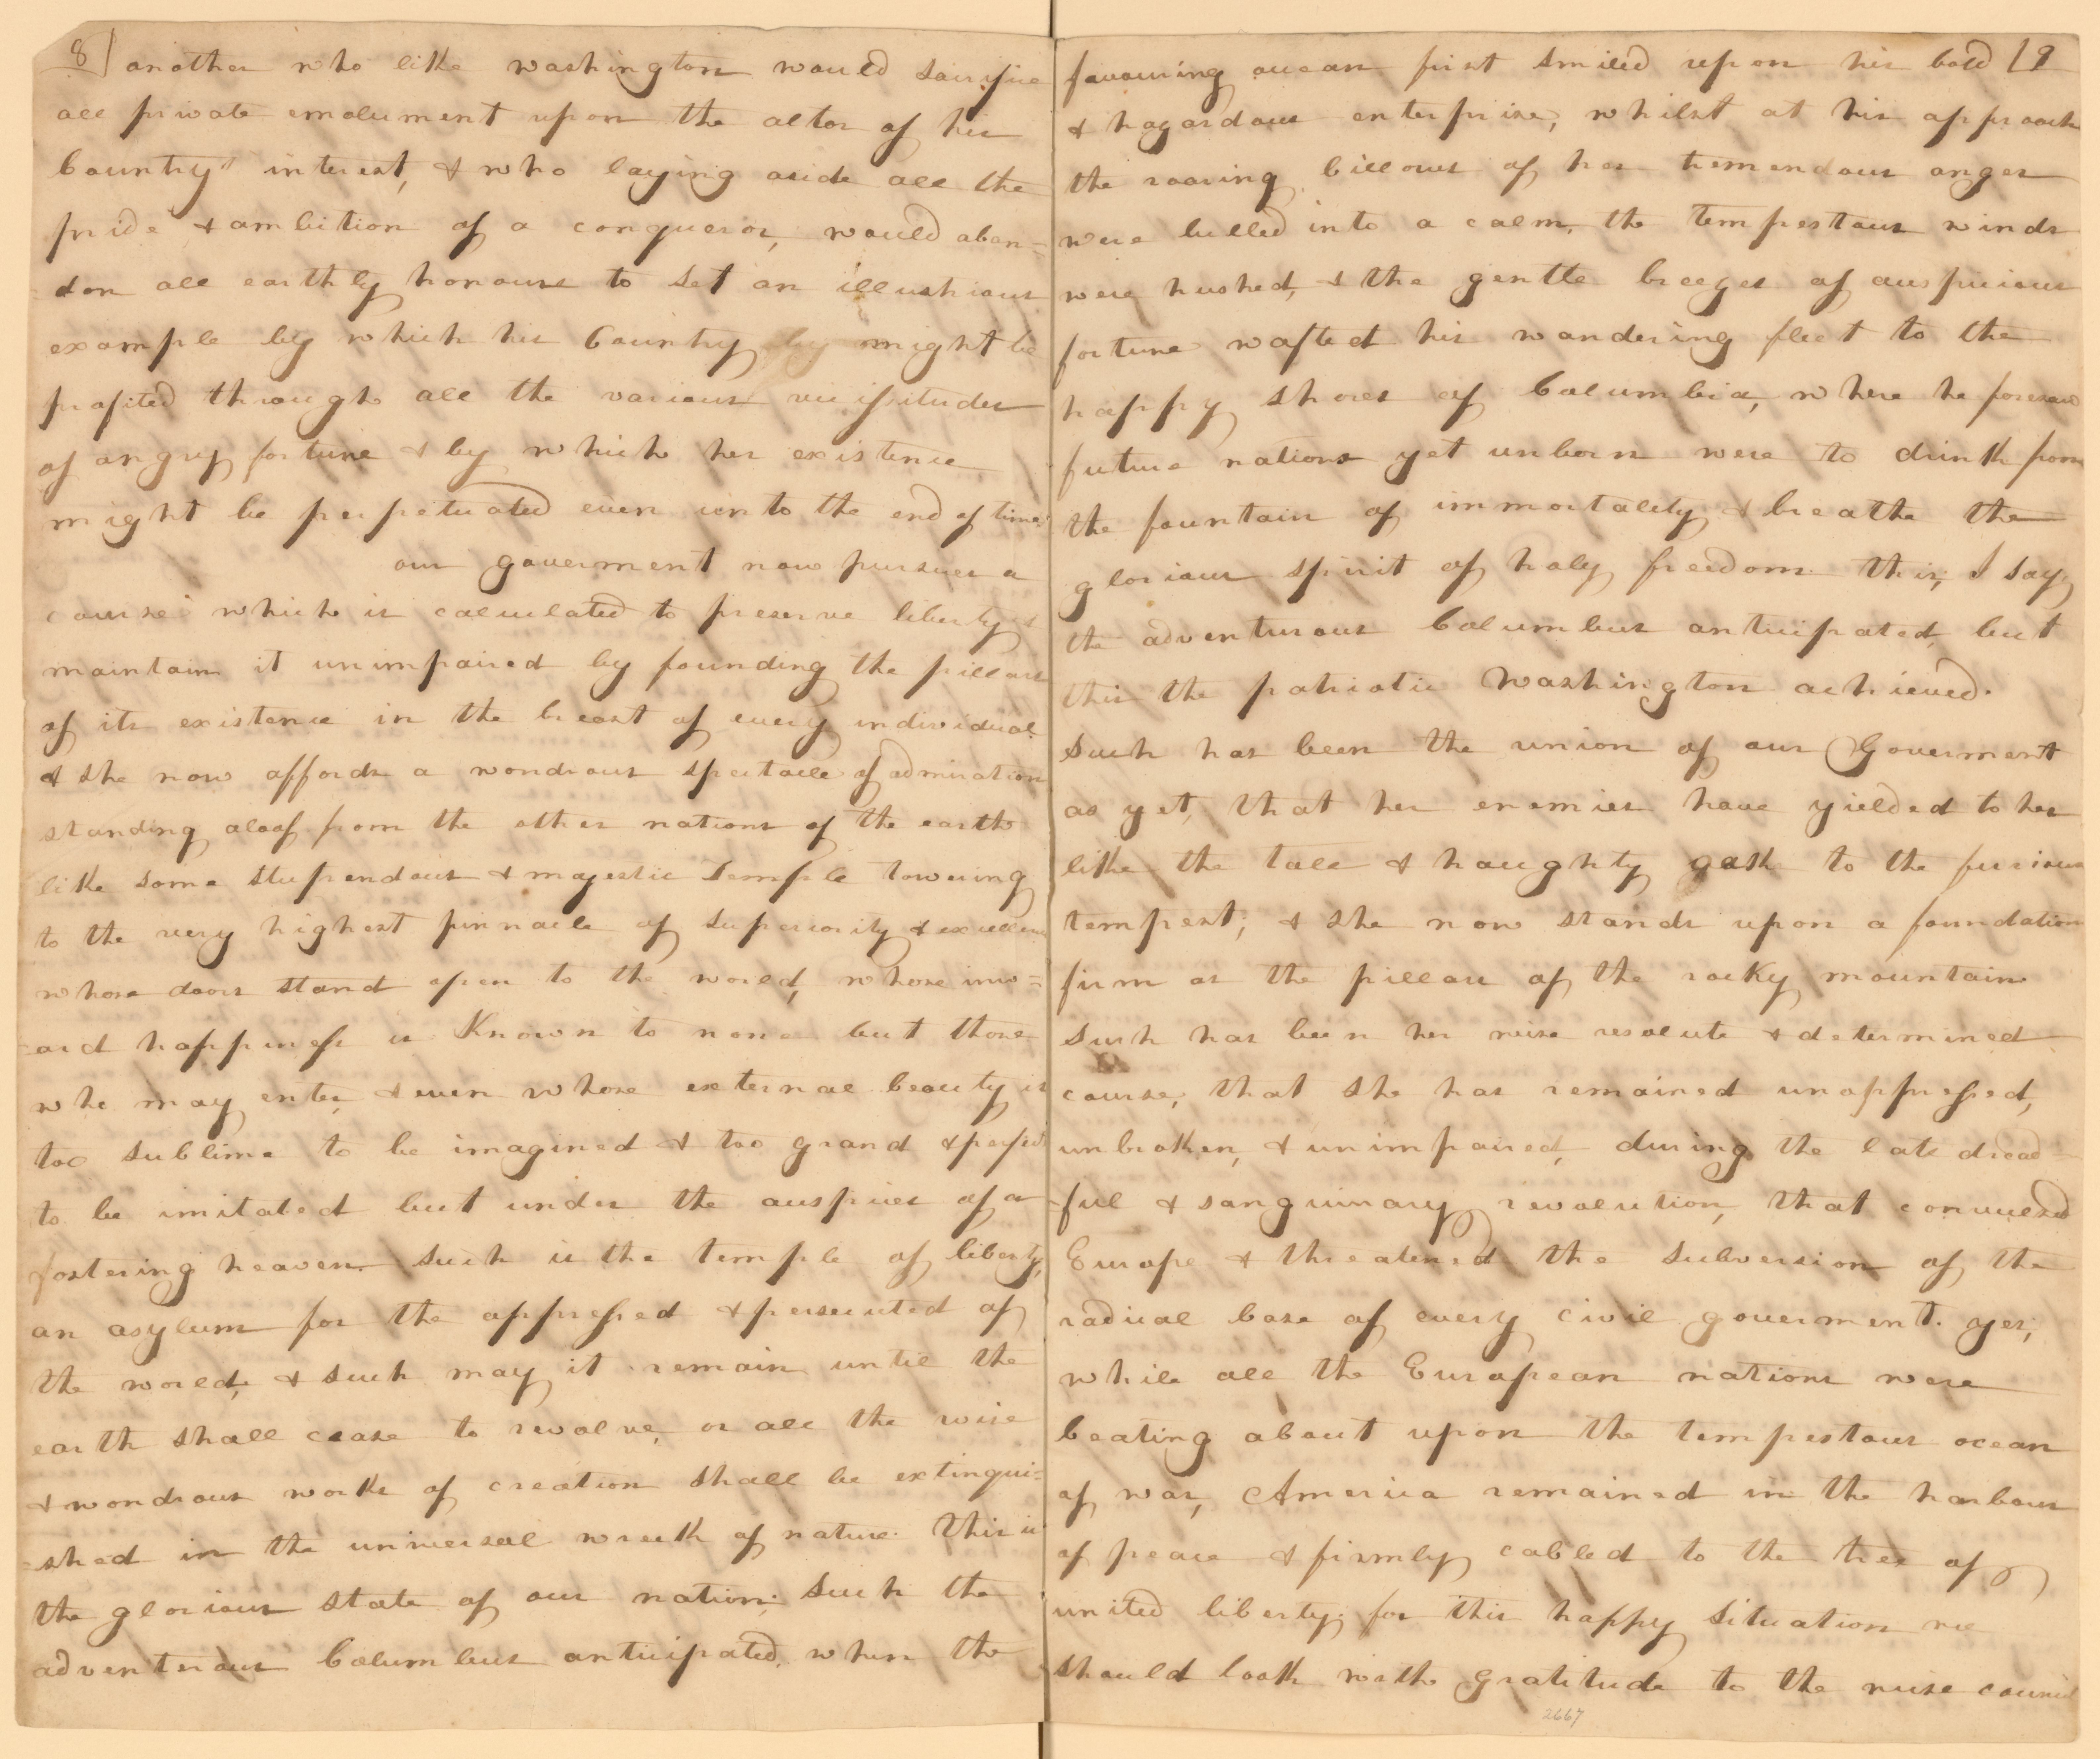 8
another who like washington would sacrifice
all private emolument upon the altar of his
Country's interest, & who laying aside all the
pride & ambition of a conqueror, would aban=
don all earthly honours to set an illustrious
example by which his Country by might be
profited through all the various vicissitudes
of angry fortune & by which her existence
might be perpetuated even unto the end of time
our goverment now pursues a
course which is calculated to preserve liberty &
maintain it unimpaired by founding the pillars
of its existence in the breast of every individual
& she now affords a wondrous spectacle of admiration
standing aloof from the other nations of the earth
like some stupendous & majestic temple towering
to the very highest pinnacle of superiority & excellence
whose doors stand open to the world, whose inw=
ard happiness is Known to none but those
who may enter, & even whose external beauty is
too sublime to be imagined & too grand & perfect
to be imitated but under the auspices of a
fostering heaven. such is the temple of liberty,
an asylum for the oppressed & persecuted of
the world, & such may it remain until the
earth shall cease to revolve, or all the wise
& wondrous works of creation shall be extingui=
shed in the universal wreck of nature. This is
the glorious state of our nation; such the
adventerous Columbus anticipated, when the
9
favouring ocean first smiled upon his bold
& hazardous enterprise, whilst at his approach
the roaring billows of her tremendous anger
were lulled into a calm, the tempestous winds
were hushed, & the gentle breezes of auspicious
fortune wafted his wandering fleet to the
happy shores of Columbia, where he foresaw
future nations yet unborn were to drink from
the fountain of immortality & breathe the
glorious spirit of holy freedom. this, I say,
the adventurous Columbus anticipated, but
this the patriotic Washington achieved.
Such has been the union of our Goverment
as yet, that her enemies have yielded to her
like the tall & haughty oak to the furious
tempest; & she now stands upon a foundation
firm as the pillars of the rocky mountain
Such has been her wise resolute & determined
course, that she has remained unoppressed,
unbroken, & unimpaired, during the late dread=
ful & sanguinary revolution, that convulsed
Europe & threatened the subversion of the
radical base of every civil goverment. yes,
while all the European nations were
beating about upon the tempestous ocean
of war, America remained in the harbour
of peace & firmly cabled to the tree of
united liberty. for this happy situation we
should look with gratitude to the wise council
2667